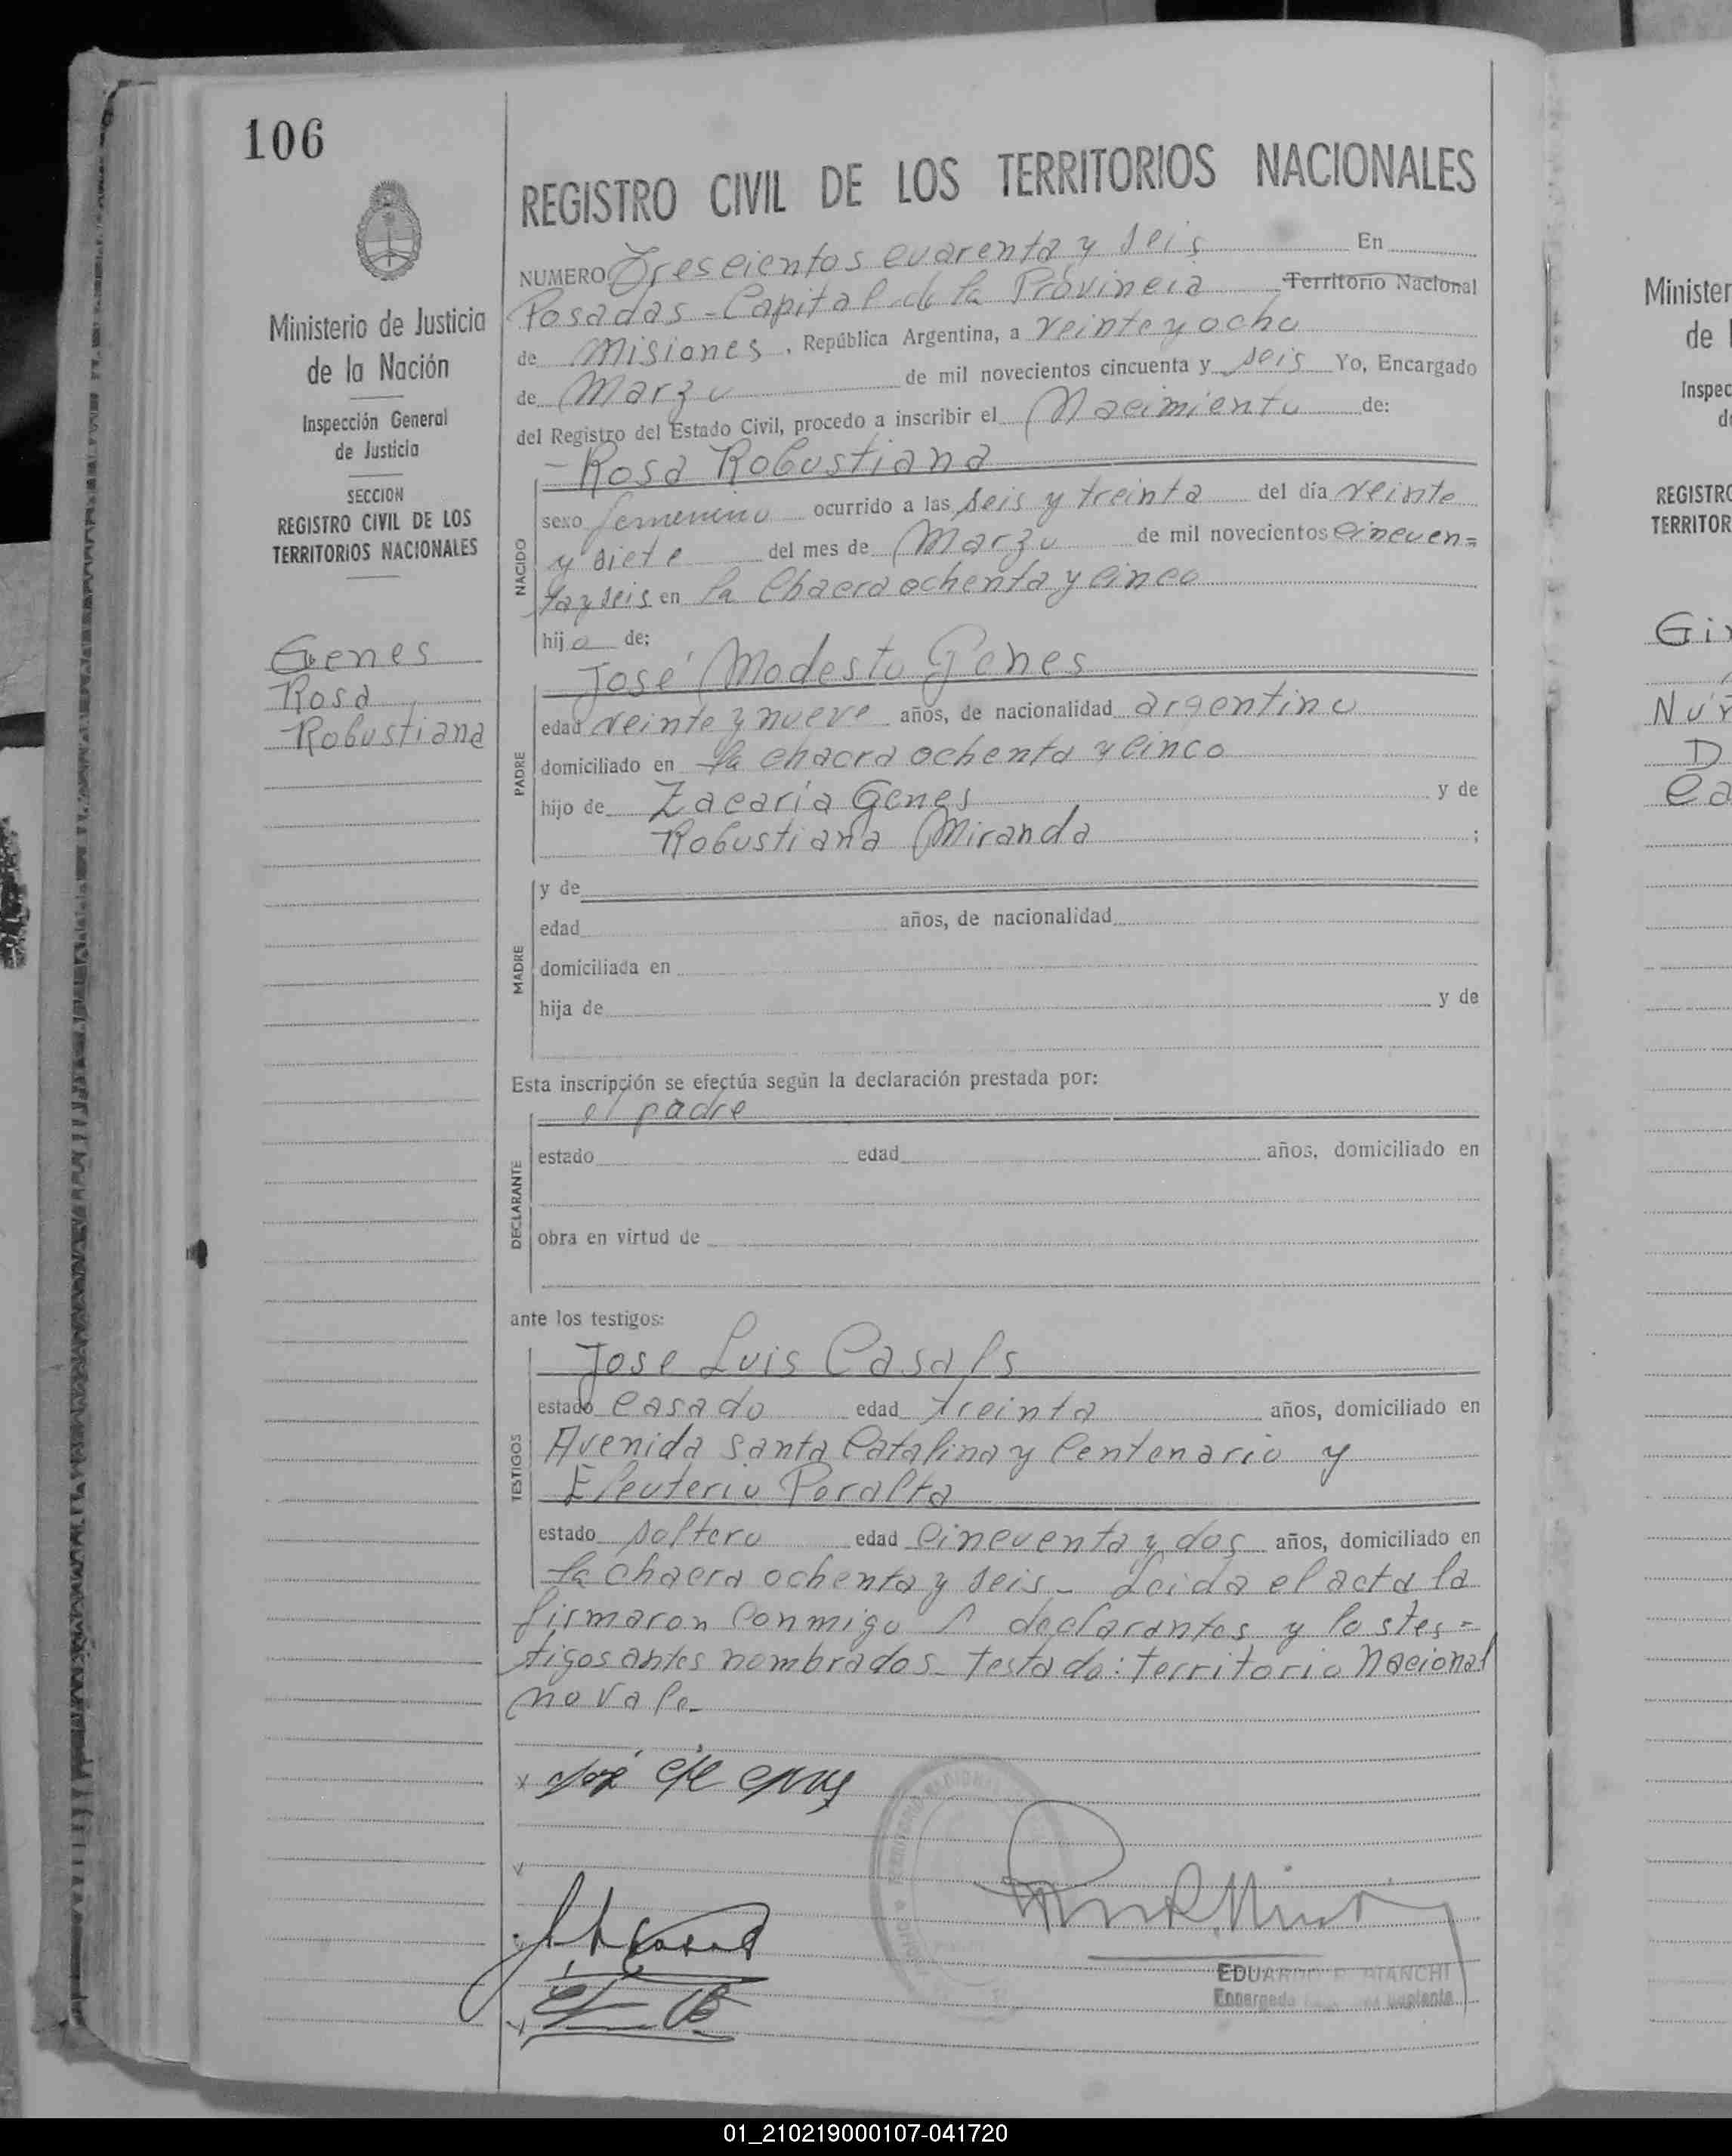 106
REGISTRO CIVIL DE LOS TERRITORIOS NACIONALES
Ministerio de Justicia
de la Nación
Inspección General
de Justicia
SECCION
REGISTRO CIVIL DE LOS
TERRITORIOS NACIONALES
Genes
Rosa
Robustiana
NUMERO Trescientos cuarenta y seis En
Posadas - Capital de la Provincia Territorio Nacional
de Misiones, República Argentina, a veinte y ocho
de Marzo de mil novecientos cincuenta y seis Yo, Encargado
del Registro del Estado Civil, procedo a inscribir el Nacimiento de:
- Rosa Robustiana
NACIDO
sexo femenino ocurrido a las seis y treinta del día veinte
y siete del mes de Marzo de mil novecientos cincuen=
ta y seis en la Chacra ochenta y cinco
hija de:
José Modesto Genes
PADRE
edad veinte y nueve años, de nacionalidad argentino
domiciliado en la chacra ochenta y cinco
hijo de Zacaría Genes y de
Robustiana Miranda ;
MADRE
y de
edad años, de nacionalidad
domiciliada en
hija de y de
Esta inscripción se efectúa según la declaración prestada por:
el padre
DECLARANTE
estado edad años, domiciliado en
obra en virtud de
ante los testigos:
Jose Luis Casals
TESTIGOS
estado casado edad treinta años, domiciliado en
Avenida santa Catalina y Centenario y
Eleuterio Peralta
estado soltero edad cincuenta y dos años, domiciliado en
la chacra ochenta y seis - Leida el acta la
firmaron conmigo declarantes y los tes=
tigos antes nombrados - testado: territorio Nacional
no vale -
EDUARDO R. BIANCHI
Encargado Suplente
Minister
de
Inspec
REGISTRO
TERRITOR
01_210219000107-041720